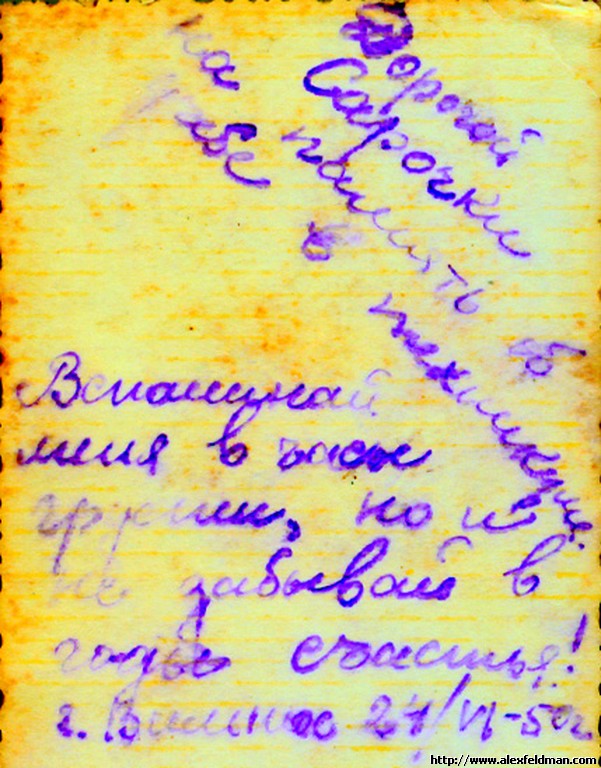 Дорогой
Сарочки
на память об
учебе в техникуме.
Вспоминай
меня в часы
грусти, но и
не забывай в
годы счастья!
г. Вильнюс 24/VI-50г
http://www.alexfeldman.com